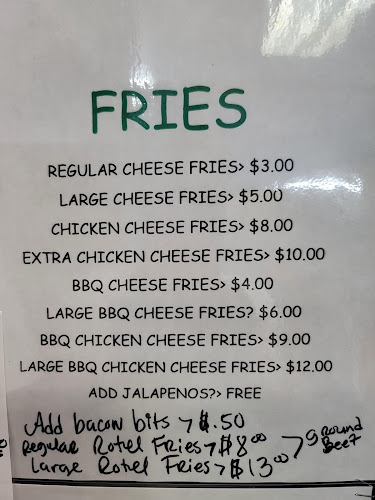 FRIES
REGULAR CHEESE FRIES> $3.00
LARGE CHEESE FRIES> $5.00
CHICKEN CHEESE FRIES> $8.00
EXTRA CHICKEN CHEESE FRIES> $10.00
BBQ CHEESE FRIES> $4.00
LARGE BBQ CHEESE FRIES? $6.00
BBQ CHICKEN CHEESE FRIES> $9.00
LARGE BBQ CHICKEN CHEESE FRIES> $12.00
ADD JALAPENOS?> FREE
Add bacon bits > $.50
Regular Rotel Fries > $8.00
Large Rotel Fries > $13.00
> Ground
Beef